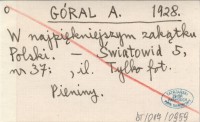 GÓRAL A. 1928.
W najpiękniejszym zakątku
Polski. - Światowid 5,
nr 37. , il. Tylko fot.
Pieniny.